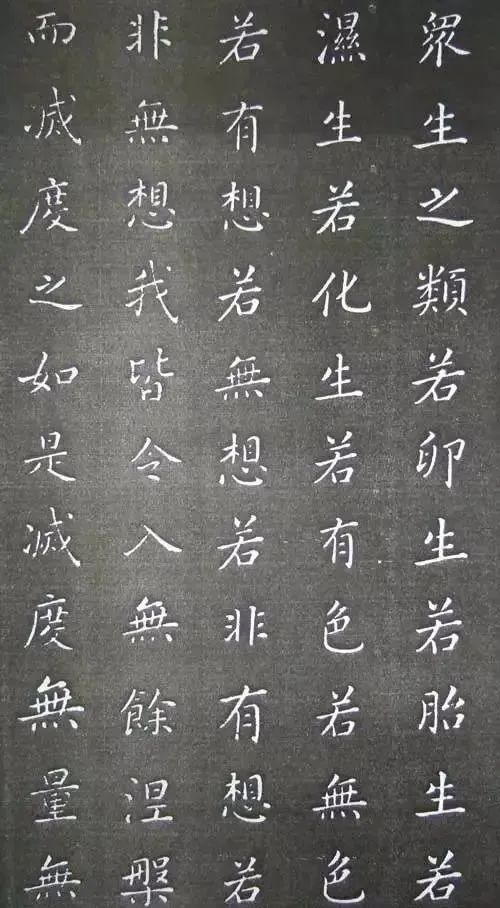 眾生之類若卵生若胎生若
濕生若化生若有色若無色
若有想若無想若非有想若
非無想我皆令入無餘涅槃
而滅度之如是滅度無量無